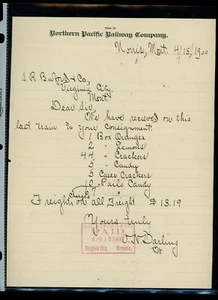 Northern Pacific Railway Company.
Norris, Mont. 4/15/1900
S. R. Buford & Co,
Virginia City,
Mont.
Dear Sir,
We have received on this
last train to your consignment.
1 Box Oranges
2 " Lemons
44 " Crackers
5 " Candy
5 Cases Crackers
10 Pails Candy
Freights on all freight $13.19
PAID
Virginia City, Montana.
Yours truly
Darling